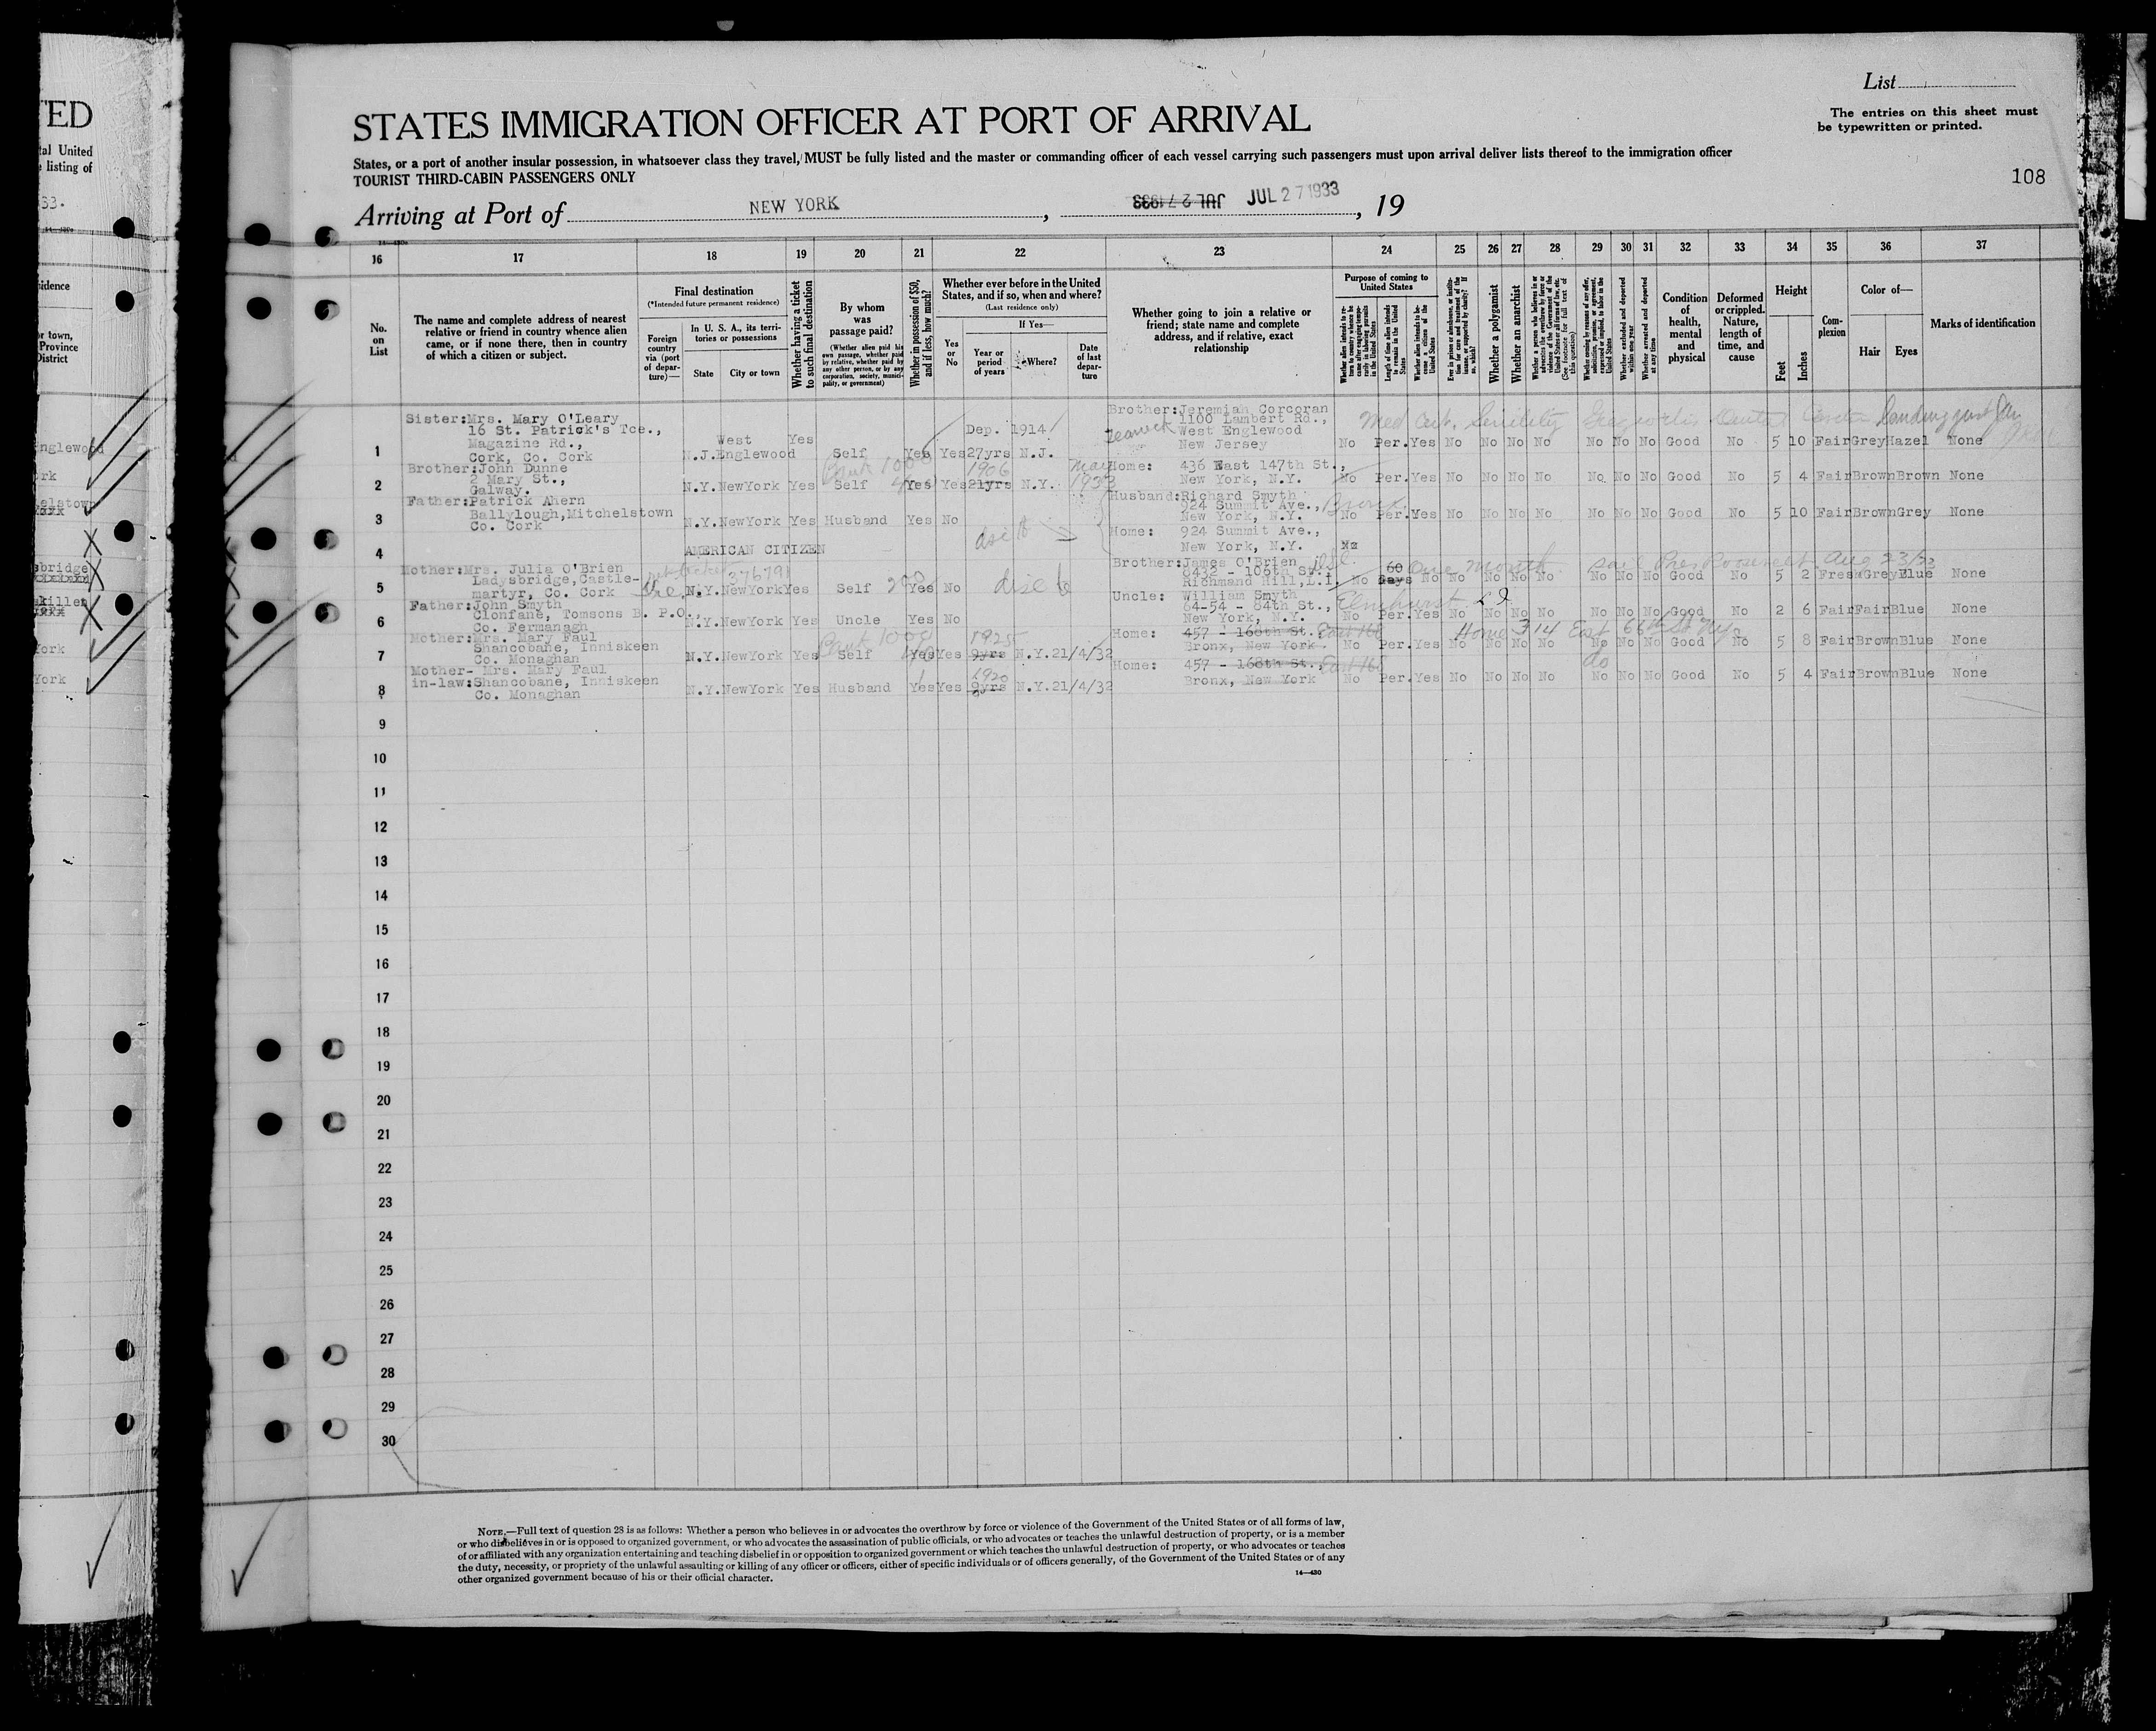 TED
tal United
listing of
33.
idence
r town,
Province
District
nglewood
rk
elstown
sbridge
killen
York
York
List
STATES IMMIGRATION OFFICER AT PORT OF ARRIVAL
The entries on this sheet must
be typewritten or printed.
States, or a port of another insular possession, in whatsoever class they travel, MUST be fully listed and the master or commanding officer of each vessel carrying such passengers must upon arrival deliver lists thereof to the immigration officer
TOURIST THIRD-CABIN PASSENGERS ONLY
108
Arriving at Port of NEW YORK, JUL 27 1933 JUL 27 1933, 19
14—430
16 17 18 19 20 21 22 23 24 25 26 27 28 29 30 31 32 33 34 35 36 37
No. on List
The name and complete address of nearest
relative or friend in country whence alien
came, or if none there, then in country
of which a citizen or subject.
Final destination
(*Intended future permanent residence)
Foreign country via (port of departure)—
In U. S. A., its territories or possessions
State
City or town
Whether having a ticket to such final destination
By whom was passage paid?
(Whether alien paid his own passage, whether paid by relative, whether paid by any other person, or by any corporation, society, municipality, or government)
Whether in possession of $50, and if less, how much?
Whether ever before in the United States, and if so, when and where?
(Last residence only)
Yes or No
If Yes—
Year or period of years
Where?
Date of last departure
Whether going to join a relative or
friend; state name and complete
address, and if relative, exact
relationship
Purpose of coming to United States
Length of time alien intends to remain in the United States
Whether alien intends to become a citizen of the United States
Whether a polygamist
Whether an anarchist
Whether arrested and deported within one year
Whether arrested and deported at any time
Condition of health, mental and physical
Deformed or crippled. Nature, length of time, and cause
Height
Feet
Inches
Complexion
Color of—
Hair
Eyes
Marks of identification
Sister:Mrs. Mary O'Leary
16 St. Patrick's Tce.,
Magazine Rd.,
Cork, Co. Cork
1 N.J. West Englewood Yes Self Yes Yes 27yrs N.J. Dep. 1914
Brother:Jeremiah Corcoran
1100 Lambert Rd.,
Teaneck West Englewood
New Jersey
Med Cert. Senility
Landing
No Per. Yes No No No No No No No Good No 5 10 Fair Grey Hazel None
Brother:John Dunne
2 Mary St.,
Galway.
2 N.Y. NewYork Yes Self Yes Yes 1906 21yrs N.Y. May 1933
Home: 436 East 147th St.,
New York, N.Y.
No Per. Yes No No No No No No No Good No 5 4 Fair Brown Brown None
Father:Patrick Ahern
Ballylough,Mitchelstown
Co. Cork
3 N.Y. NewYork Yes Husband Yes No
Husband:Richard Smyth
924 Summit Ave., Bronx
New York, N.Y.
No Per. Yes No No No No No No No Good No 5 10 Fair Brown Grey None
4 AMERICAN CITIZEN
Home: 924 Summit Ave.,
New York, N.Y.
No
Mother:Mrs. Julia O'Brien
Ladysbridge,Castle-
martyr, Co. Cork
5 N.Y. NewYork Yes Self 200 Yes No
Brother:James O'Brien
8432 - 106th St.,
Richmond Hill,L.I.
No 60 Days No No No No No No No No Good No 5 2 Fresh Grey Blue None
one month. sail Pres Roosevelt. Aug 23/33
Father:John Smyth
Clonfane, Tomsons B. P.O.,
Co. Fermanagh
6 N.Y. NewYork Yes Uncle Yes No
Uncle: William Smyth
64-54 - 84th St., Elmhurst L I
New York, N.Y.
No Per. Yes No No No No No No No Good No 2 6 Fair Fair Blue None
Mother:Mrs. Mary Faul
Shancobane, Inniskeen
Co. Monaghan
7 N.Y. NewYork Yes Self Yes Yes 1925 9yrs N.Y. 21/4/32
Home: 457 - 168th St. East 168
Bronx, New York.
Home 314 East 66th St NY
No Per. Yes No No No No No No No Good No 5 8 Fair Brown Blue None
Mother- Mrs. Mary Faul
in-law:Shancobane, Inniskeen
Co. Monaghan
8 N.Y. NewYork Yes Husband Yes Yes 1920 9yrs N.Y. 21/4/32
Home: 457 - 168th St., East 168
Bronx, New York
do
No Per. Yes No No No No No No No Good No 5 4 Fair Brown Blue None
9
10
11
12
13
14
15
16
17
18
19
20
21
22
23
24
25
26
27
28
29
30
NOTE.—Full text of question 28 is as follows: Whether a person who believes in or advocates the overthrow by force or violence of the Government of the United States or of all forms of law,
or who disbelieves in or is opposed to organized government, or who advocates the assassination of public officials, or who advocates or teaches the unlawful destruction of property, or is a member
of or affiliated with any organization entertaining and teaching disbelief in or opposition to organized government or which teaches the unlawful destruction of property, or who advocates or teaches
the duty, necessity, or propriety of the unlawful assaulting or killing of any officer or officers, either of specific individuals or of officers generally, of the Government of the United States or of any
other organized government because of his or their official character.
14—430